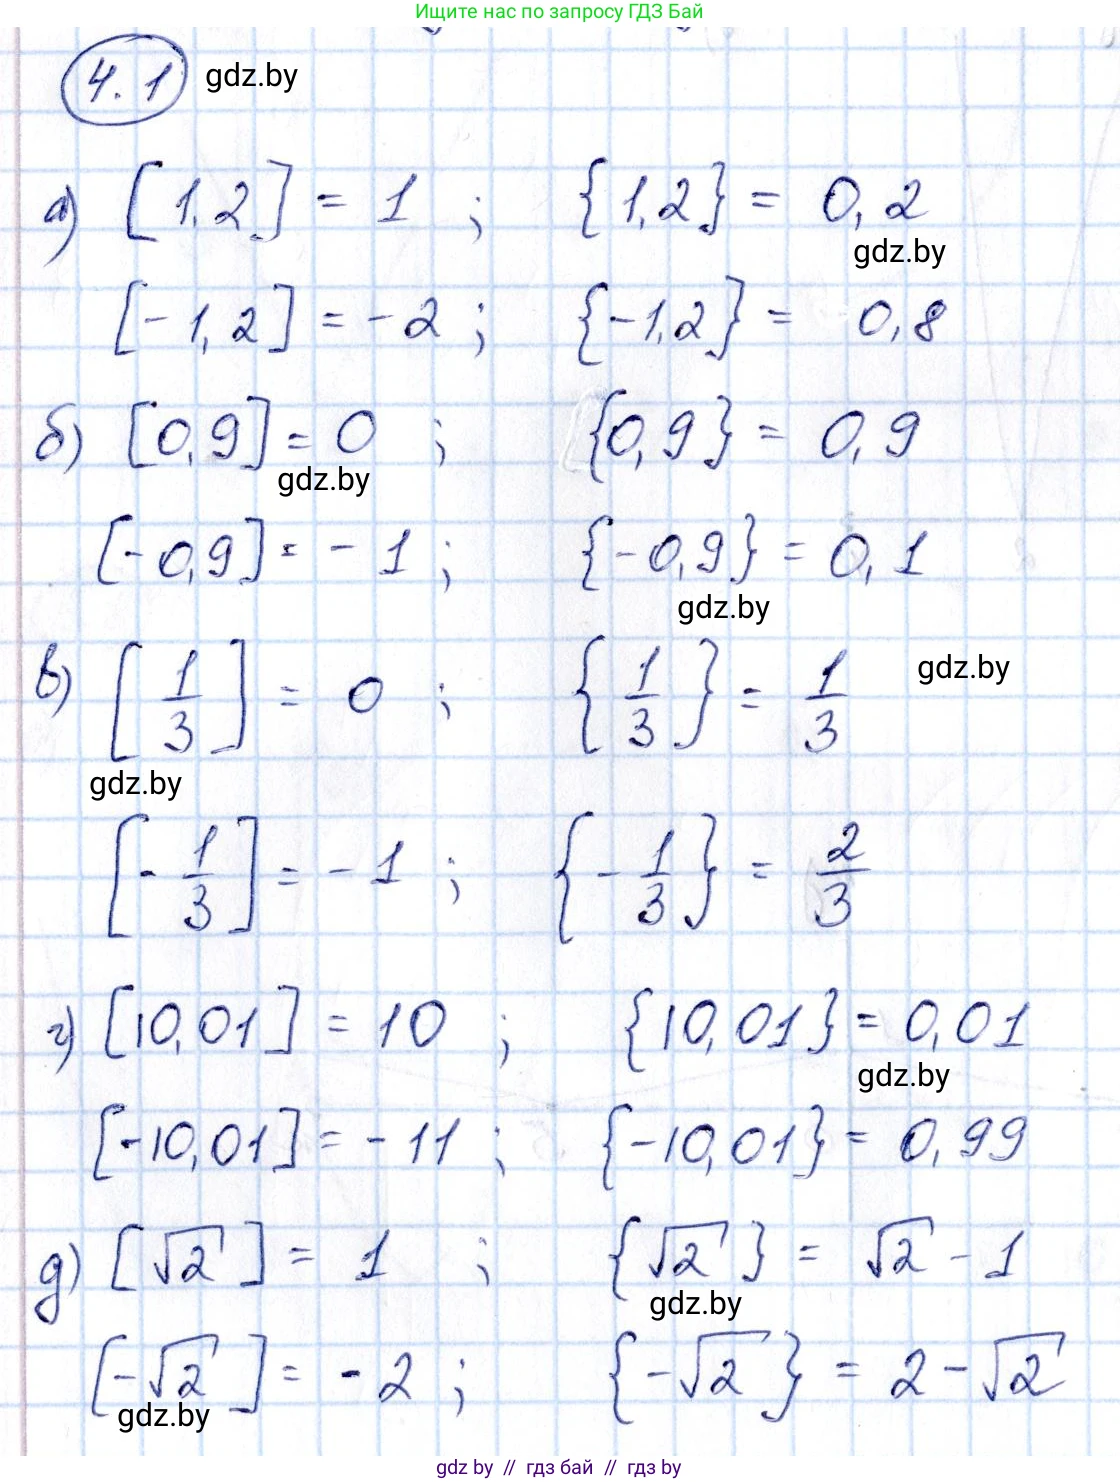 Ищите нас по запросу ГДЗ Бай
4.1 gdz.by
а) [1,2] = 1 ; {1,2} = 0,2
gdz.by
[-1,2] = -2 ; {-1,2} = 0,8
б) [0,9] = 0 ; {0,9} = 0,9
gdz.by
[-0,9] = -1 ; {-0,9} = 0,1
gdz.by
в) [1/3] = 0 ; {1/3} = 1/3 gdz.by
gdz.by
[-1/3] = -1 ; {-1/3} = 2/3
г) [10,01] = 10 ; {10,01} = 0,01
gdz.by
[-10,01] = -11 ; {-10,01} = 0,99
д) [√2] = 1 ; {√2} = √2 - 1
gdz.by
[-√2] = -2 ; {-√2} = 2 - √2
gdz.by
gdz by // гдз бай // гдз by